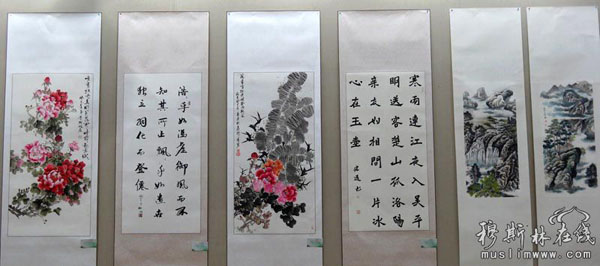 浩乎如馮虛御風而不
知其所止飄乎如遺世
獨立羽化而登僊
寒雨連江夜入吳平
明送客楚山孤洛陽
親友如相問一片冰
心在玉壺
穆斯林在线
muslimwww.com